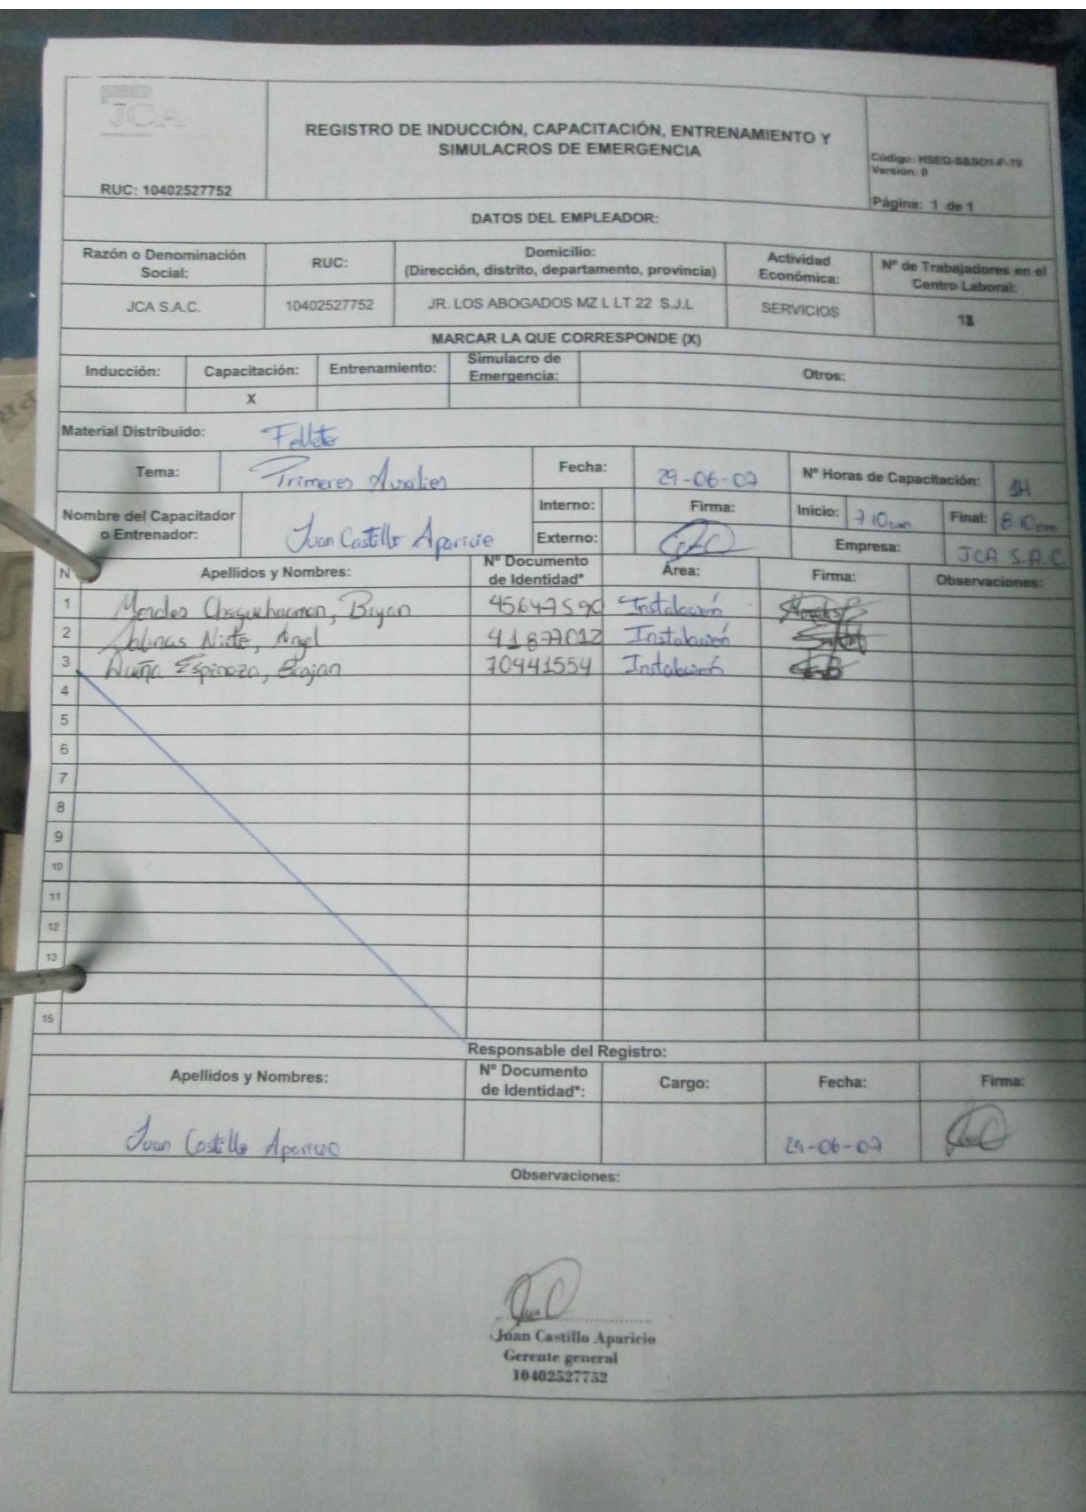 JCA
RUC: 10402527752
REGISTRO DE INDUCCIÓN, CAPACITACIÓN, ENTRENAMIENTO Y
SIMULACROS DE EMERGENCIA
Código: HSEQ-S&SO1-F-78
Versión: 0
Página: 1 de 1
DATOS DEL EMPLEADOR:
Razón o Denominación Social: RUC: Domicilio: (Dirección, distrito, departamento, provincia) Actividad Económica: Nº de Trabajadores en el Centro Laboral:
JCA S.A.C. 10402527752 JR. LOS ABOGADOS MZ L LT 22 S.J.L SERVICIOS
MARCAR LA QUE CORRESPONDE (X)
Inducción: Capacitación: Entrenamiento: Simulacro de Emergencia: Otros:
X
Material Distribuido: Folleto
Tema: Primeros Auxilios Fecha: 29-06-07 Nº Horas de Capacitación: 1H
Nombre del Capacitador o Entrenador: Juan Castillo Aparicio Interno: Firma: Inicio: 7 10am Final: 8 10am
Externo: Empresa: JCA S.A.C
N Apellidos y Nombres: Nº Documento de Identidad* Área: Firma: Observaciones:
1 Brayan 45647590 Instalación
2 Salinas Ángel 41877012 Instalación
3 Espinoza, Brajan 70441554 Instalación
4
5
6
7
8
9
10
11
12
13
15
Responsable del Registro:
Apellidos y Nombres: Nº Documento de Identidad*: Cargo: Fecha: Firma:
Juan Castillo Aparicio 29-06-07
Observaciones:
Juan Castillo Aparicio
Gerente general
10402527752